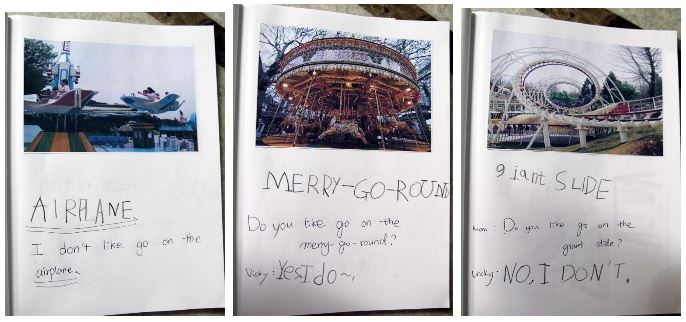 AIRPLANE
I don't like go on the
airplane.
MERRY-GO-ROUND
Do you like go on the
merry-go-round?
Vicky: Yes I do~,
giant SLIDE
Mom: Do you like go on the
giant slide?
Vicky: NO, I DON'T.